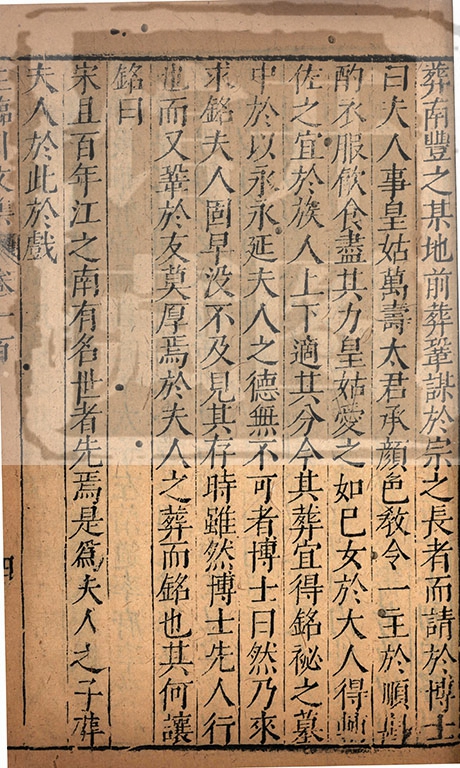 葬南豐之某地前葬鞏謀於宗之長者而請於博士
曰夫人事皇姑萬壽太君承顏色敎令一主於順斟
酌衣服飮食盡其力皇姑愛之如已女於大人得輿
佐之宜於族人上下適其分今其葬宜得銘祕之墓
中於以永永延夫人之德無不可者博士曰然乃來
求銘夫人固早沒不及見其存時雖然博士先人行
也而又鞏於友莫厚焉於夫人之葬而銘也其何讓
銘曰
宋且百年江之南有名世者先焉是爲夫人之子葬
夫人於此於戲
王臨川文集 卷一百
四